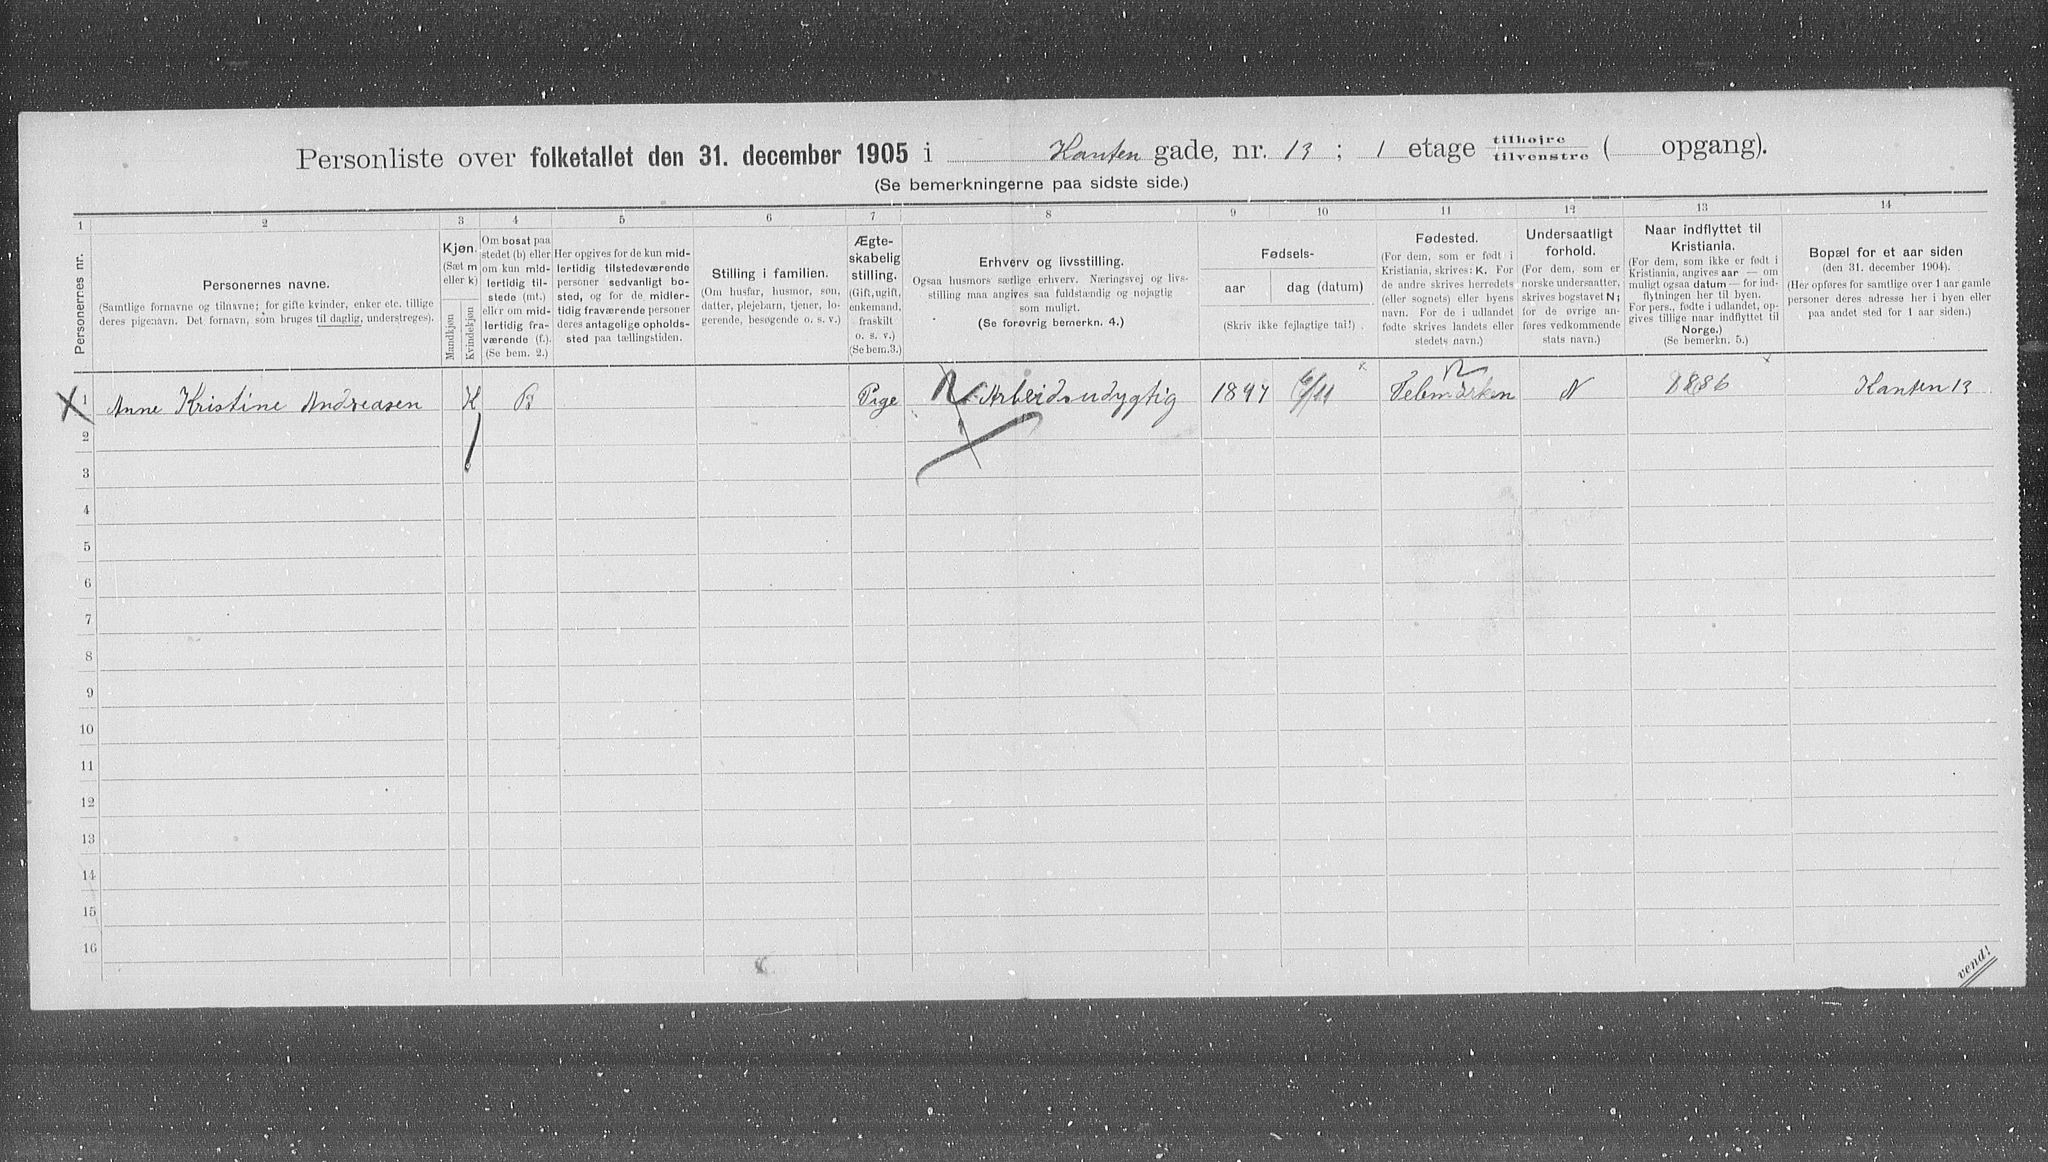 Personliste over folketallet den 31. december 1905 i Kanten gade, nr. 13 ; 1 etage tilhøjre tilvenstre ( opgang).
(Se bemerkningerne paa sidste side.)
1 2 3 4 5 6 7 8 9 10 11 12 13 14
Personernes nr.
Personernes navne.
(Samtlige fornavne og tilnavne; for gifte kvinder, enker etc. tillige
deres pigenavn. Det fornavn, som bruges til daglig, understreges).
Kjøn.
(Sæt m
eller k)
Mandkjøn
Kvindekjøn
Om bosat paa
stedet (b) eller
om kun mid-
lertidig til-
stede (mt.)
eller om mid-
lertidig fra-
værende (f.).
(Se bem. 2.)
Her opgives for de kun mid-
lertidig tilstedeværende
personer sedvanligt bo-
sted, og for de midler-
tidig fraværende personer
deres antagelige opholds-
sted paa tællingstiden.
Stilling i familien.
(Om husfar, husmor, søn,
datter, plejebarn, tjener, lo-
gerende, besøgende o. s. v.)
Ægte-
skabelig
stilling.
(Gift, ugift,
enkemand,
fraskilt
o. s. v.)
(Se bem.3.)
Erhverv og livsstilling.
Ogsaa husmors særlige erhverv. Næringsvej og livs-
stilling maa angives saa fuldstændig og nøjagtig
som muligt.
(Se forøvrig bemerkn. 4.)
Fødsels-
aar
dag (datum)
(Skriv ikke fejlagtige tal!)
Fødested.
(For dem, som er født i
Kristiania, skrives: K. For
de andre skrives herredets
(eller sognets) eller byens
navn. For de i udlandet
fødte skrives landets eller
stedets navn.)
Undersaatligt
forhold.
(For dem, som er
norske undersaatter,
skrives bogstavet N;
for de øvrige an-
føres vedkommende
stats navn.)
Naar indflyttet til
Kristiania.
(For dem, som ikke er født i
Kristiania, angives aar — om
muligt ogsaa datum — for ind-
flytningen her til byen.
For pers., fødte i udlandet, op-
gives tillige naar indflyttet til
Norge.)
(Se bemerkn. 5.)
Bopæl for et aar siden
(den 31. december 1904).
(Her opføres for samtlige over 1 aar gamle
personer deres adresse her i byen eller
paa andet sted for 1 aar siden.)
1 Anne Kristine Andreasen K B Pige Arbeidsudygtig 1847 6/11 Telemarken N 1886 Kanten 13
2
3
4
5
6
7
8
9
10
11
12
13
14
15
16
vend!